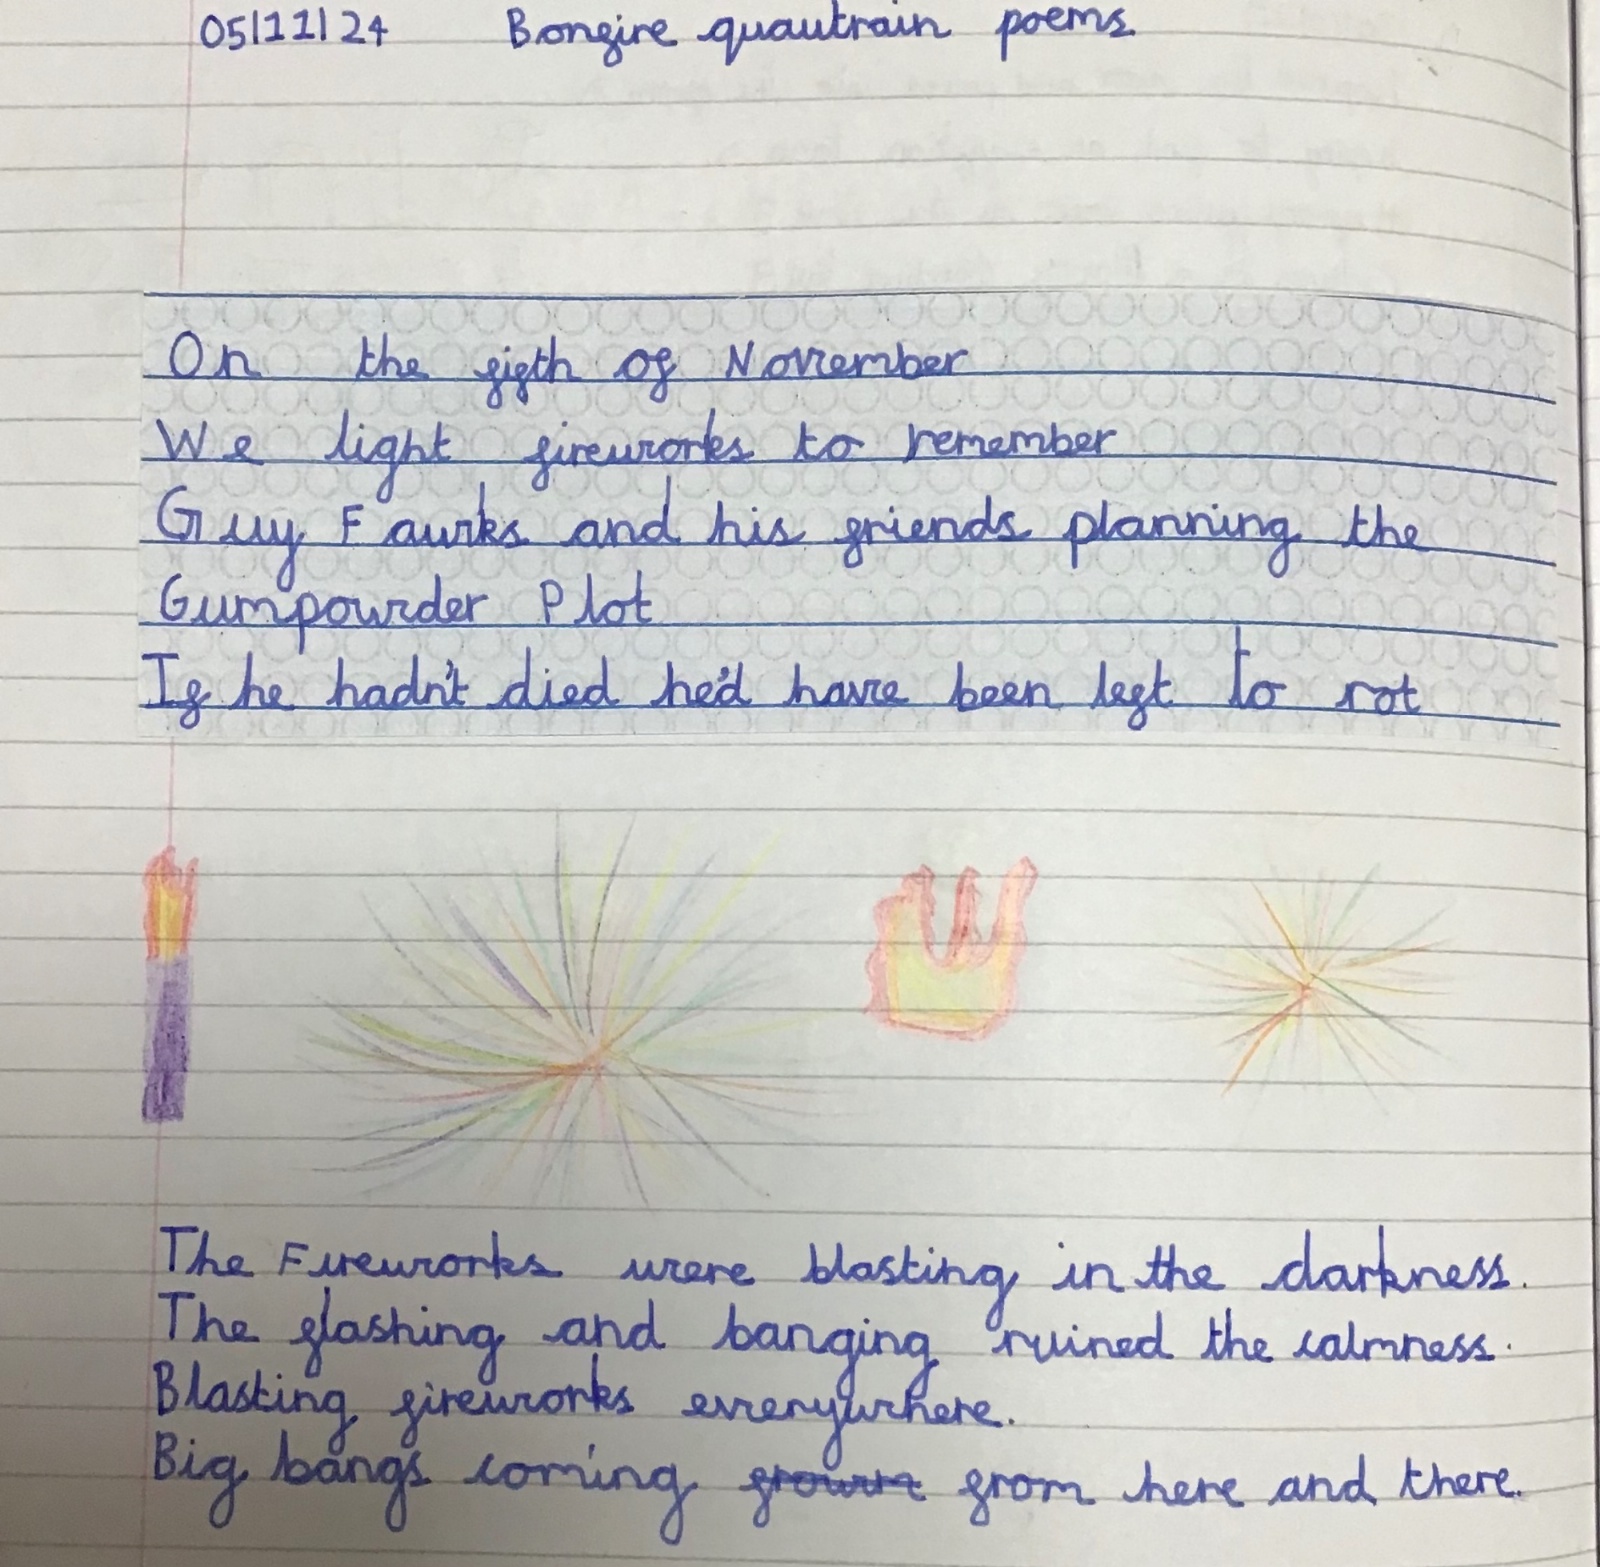 05/11/24 Bonfire quautrain poems
On the fifth of November
We light fireworks to remember
Guy Fawks and his friends planning the
Gumpowder Plot
If he hadn't died he'd have been left to rot
The Fireworks were blasting in the darkness.
The flashing and banging ruined the calmness.
Blasting fireworks everywhere.
Big bangs coming from here and there.